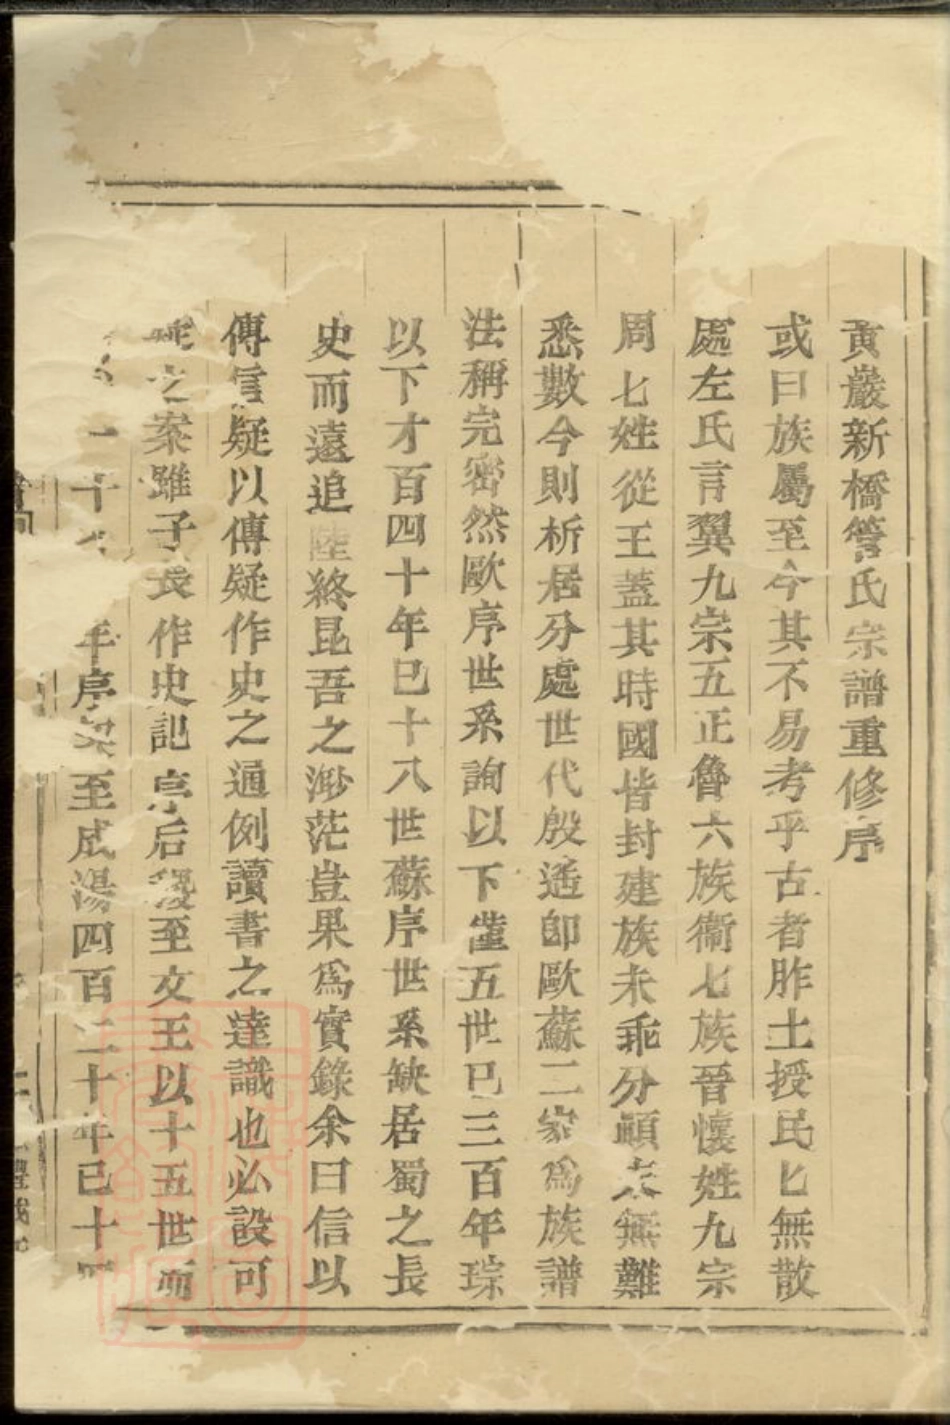 黃巖新橋管氏宗譜重修序
或曰族屬至今其不易考乎古者胙土授民匕無散
處左氏言翼九宗五正魯六族衞七族晉懷姓九宗
周七姓從王蓋其時國皆封建族未乖分頭未無難
悉數今則析居分處世代殷遙卽歐蘇二家爲族譜
法稱完密然歐序世系詢以下僅五世已三百年琮
以下才百四十年已十八世蘇序世系缺居蜀之長
史而遠追陸終昆吾之渺茫豈果爲實錄余曰信以
傳信疑以傳疑作史之通例讀書之達識也必設可
之案雖子長作史記序后稷至文王以十五世而
十 年序契至成湯四百二十年已十四